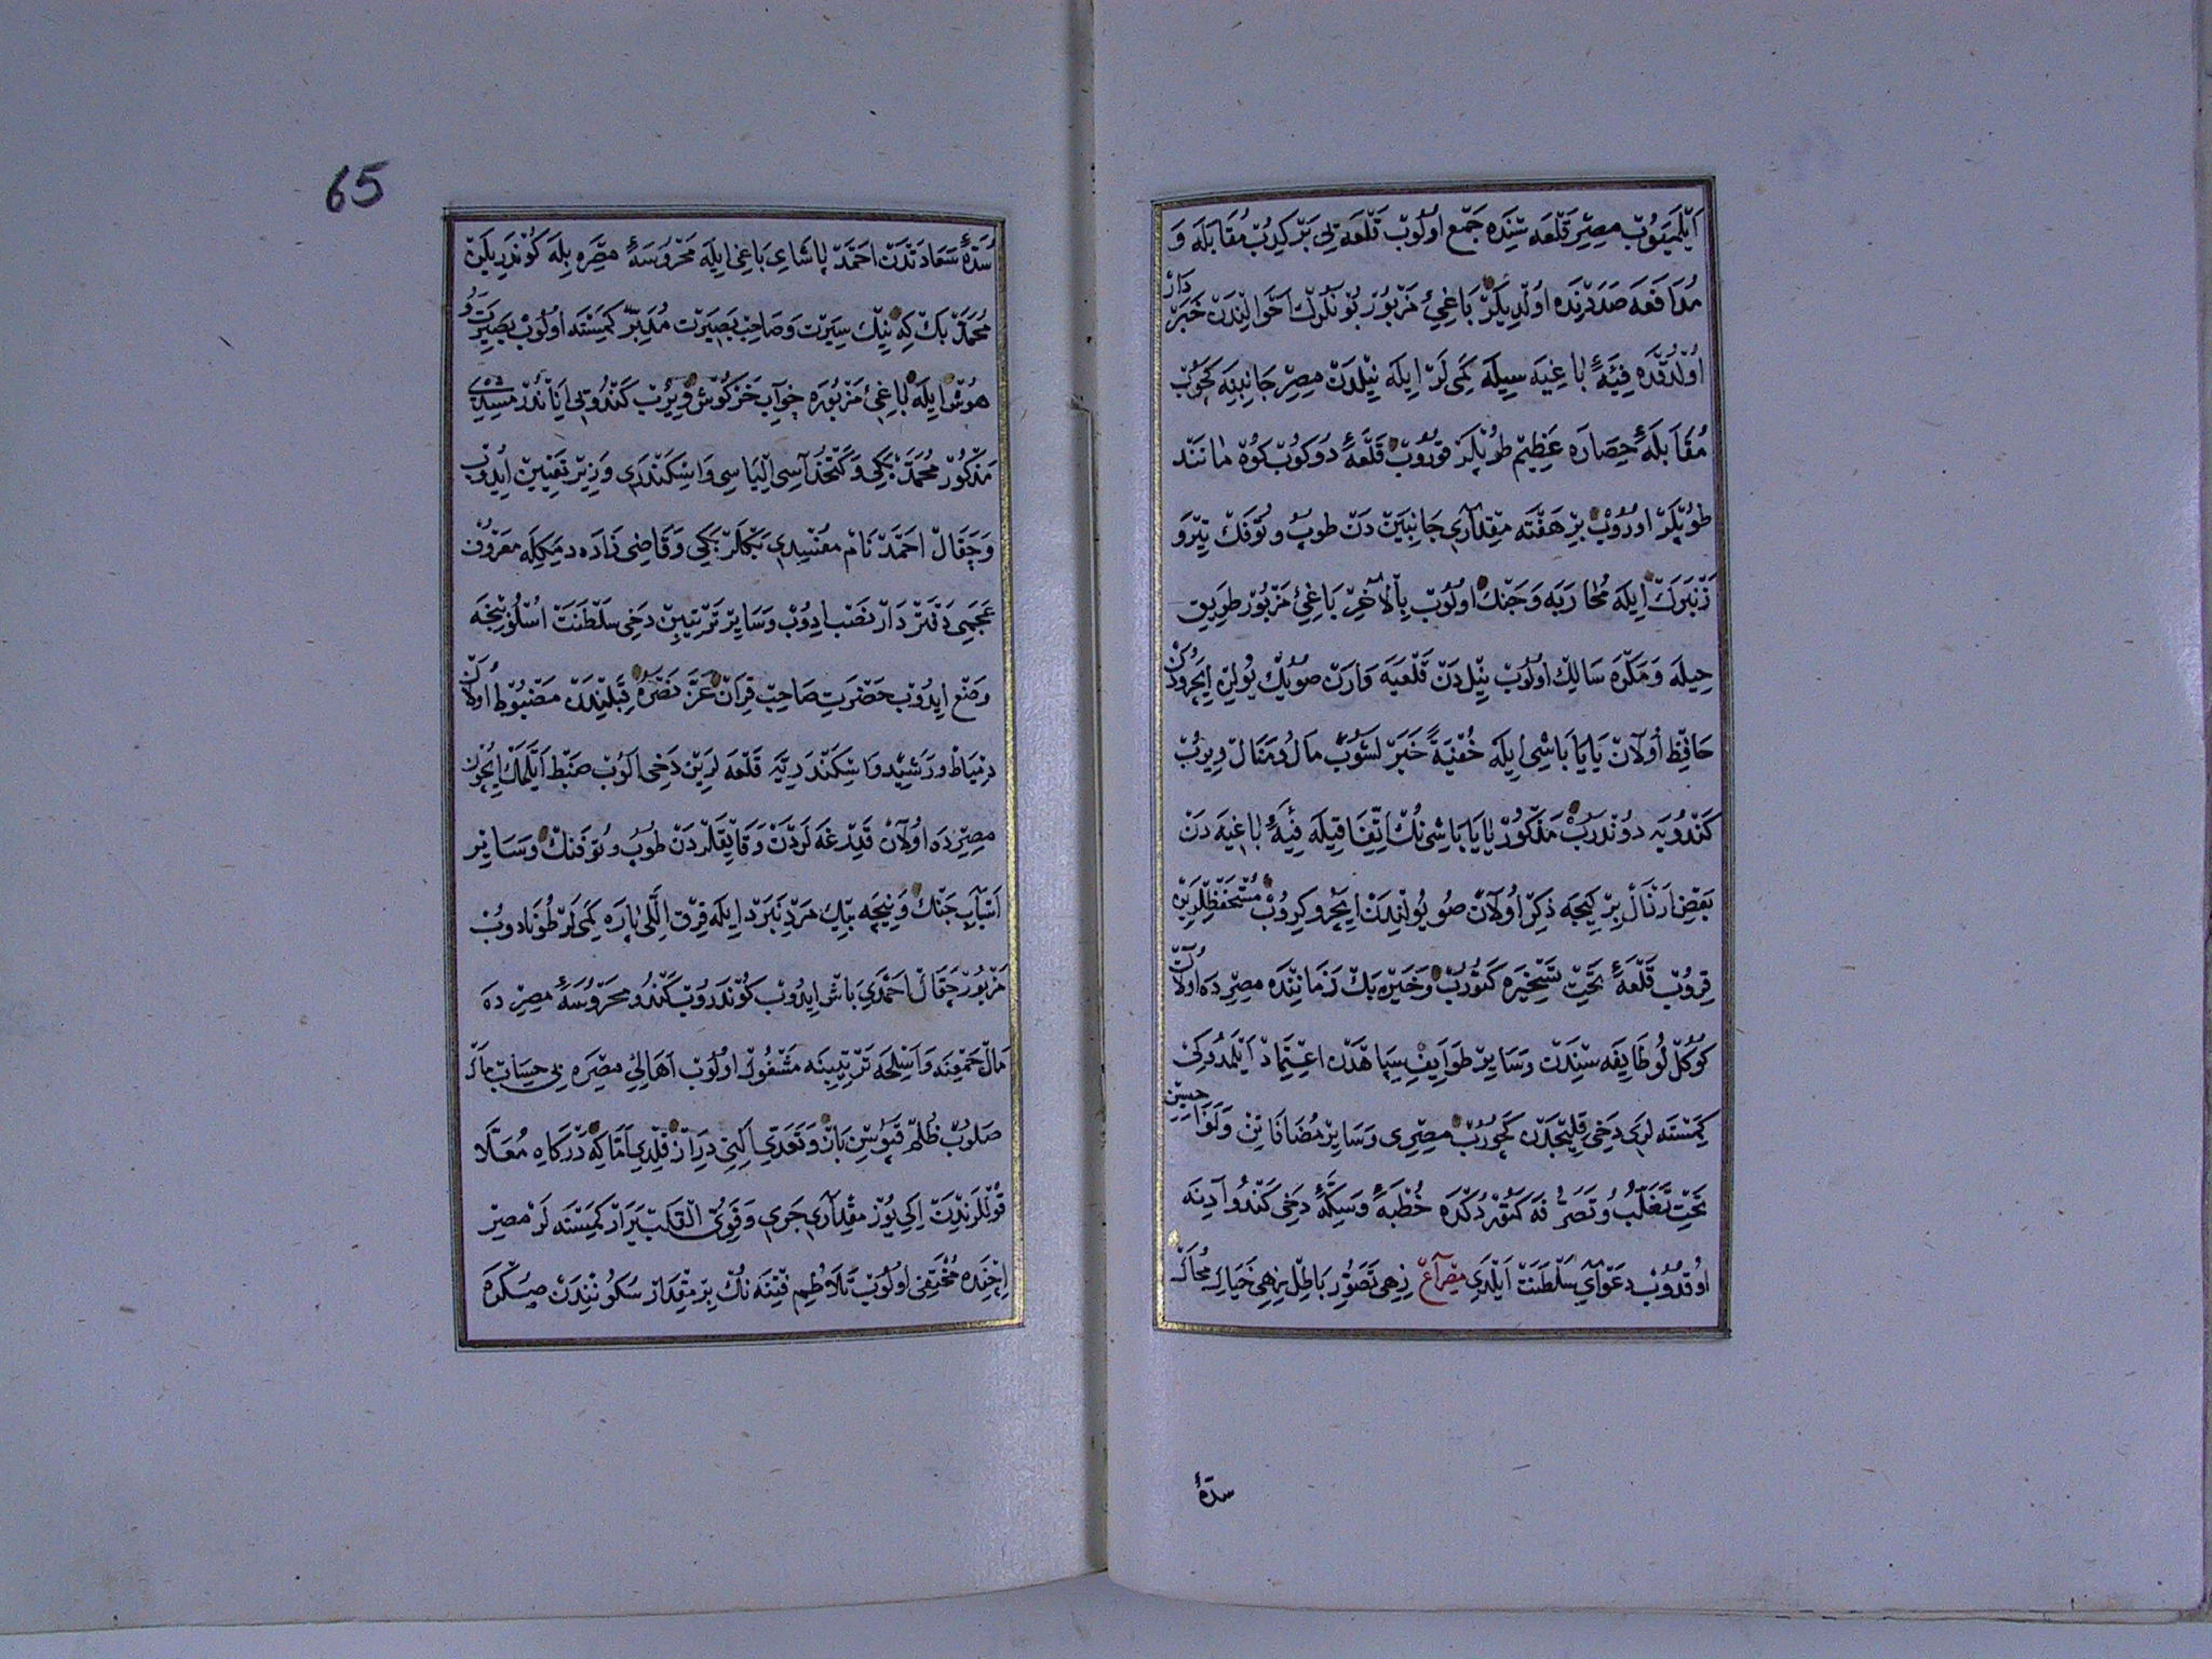 اَيْلَمَيُوبْ مِصِرْ قَلْعَه سِنْدَه جَمْع اُولُوبْ قَلْعَه يِى بَرْكِيدُبْ مُقَابَلَه وَ
مُدَافَعَه صَدَدِنْدَه اُولْدِيلَرْ بَاغِىِٔ مَزْبُورْ بُونْلَرُكْ اَحْوَالِنْدَنْ خَبَرْدَارْ
اُولْدُقْدَه فِئَهِٔ بَاغِيَه سِيلَه كَمِى لَرْ اِيلَه نِيلْدَنْ مِصِرْ جَانِبِنَه كَچُوبْ
مُقَابَلَهِٔ حِصَارَه عَظِيمْ طُوپْلَرْ قُورُوبْ قَلْعَهِٔ دُوكُوبْ كُوهْ مَانَنْد
طُوپْلَرْ اُورُوبْ بِرْ هَفْتَه مِقْدَارِى جَانِبَيْنْ دَنْ طُوپْ و تُوفَنْكْ تِيرْ وَ
زَنْبَرَكْ اِيلَه مُحَارَبَه وَ جَنْكْ اُولُوبْ بِالْآخِرْ بَاغِىِٔ مَزْبُورْ طَرِيقِ
حِيلَه وَ مَكْرَه سَالِكْ اُولُوبْ نِيلْ دَنْ قَلْعَيَه وَارَنْ صُويُكْ يُولِنْ اِيچَرُودَنْ
حَافِظْ اُولَانْ يَايَا بَاشِى اِيلَه خُفْيَةً خَبَرْ لَشُوبْ مَالُ و مَنَالْ وِيرُبْ
كَنْدُويَه دُونْدَرُبْ مَذْكُورْ يَايَا بَاشِى نُكْ اِتِّفَاقِيلَه فِئَهِٔ بَاغِيَه دَنْ
بَعْضِ اَرْذَالْ بِرْ كِيجَه ذِكْرْ اُولَانْ صُو يُولِنْدَنْ اِيچَرُو كِرُوبْ مُسْتَحْفَظْلَرِنِ
قِرُوبْ قَلْعَهِٔ تَحْتِ تَسْخِيرَه كَتُورُبْ وَ خَيْرَه بَكْ زَمَانِنْدَه مِصِرْ دَه اُولَانْ
كُوكُلْ لُو طَايِفَه سِنْدَنْ وَ سَايِرْ طَوَايِفِ سِپَاهْدَنْ اِعْتِمَادْ اَيْلَمَدُوكِى
كِمَسْنَه لَرِى دَخِى قِلِيجْدَنْ كَچُورُبْ مِصِرِى وَ سَايِرْ مُضَافَاتِنْ وَ لَوَاحِقِنْ
تَحْتِ تَغَلُّبْ و تَصَرُّفَه كَتُورْدُكْدَه خُطْبَهِٔ وَ سِكَّهِٔ دَخِى كَنْدُو آدِنَه
اُوقُدُوبْ دَعْوَاىِ سَلْطَنَتْ اَيْلَدِى مِصْرَاعْ زِهِى تَصَوُّرِ بَاطِلْ زِهِى خَيَالِ مُحَالْ
سدّهٔ
65
سُدَّهِٔ سَعَادَتْدَنْ اَحْمَدْ پَاشَاىِ بَاغِى اِيلَه مَحْرُوسَهِٔ مِصِرَه بِلَه كُونْدَرِيلَنْ
مُحَمَّدْ بَكْ كِه نِيكْ سِيرَتْ وَ صَاحِبْ بَصِيرَتْ مُدَبِّرْ كِمَسْنَه اُولُوبْ بَصِيرَتْ و
هُوشْ اِيلَه بَاغِىِٔ مَزْبُورَه خوَابِ خَرْكُوشْ وِيرُبْ كَنْدُويِى اِينَانْدُرْمِشِيدِى
مَذْكُورْ مُحَمَّدْ بَكِى وَ كَتْخُدَاسِى اِلْيَاسِى وَ اِسْكَنْدَرِى وَزِيرْ تَعْيِينْ اِيدُوبْ
وَ چَقَالْ اَحْمَدْ نَامْ مُفْسِدِى بَكْلَرْ بَكِى وَ قَاضِى زَادَه دِيمَكْلَه مَعْرُوفْ
عَجَمِى دَفْتَرْدَارْ نَصْب اِدُوبْ وَ سَايِرْ تَرْتِيبِنْ دَخِى سَلْطَنَتْ اُسْلُوبِنْجَه
وَضْع اِيدُوبْ حَضْرَتِ صَاحِبْ قِرَانْ عَزَّ نَصْرُهُ قِبَلِنْدَنْ مَضْبُوطْ اُولَانْ
دِمْيَاطْ و رَشِيدْ و اِسْكَنْدَرِيَّه قَلْعَه لَرِينْ دَخِى آلُوبْ ضَبْط اَيْلَمَكْ اِيچُونْ
مِصِرْدَه اُولَانْ قَدِرْغَه لَرْدَنْ وَ قَايِقْلَرْدَنْ طُوبْ و تُوفَنْكْ وَ سَايِرْ
اَسْبَابِ جَنْكْ وَ نِيچَه بِيكْ مَرْدِ نَبَرْد اِيلَه قِرْق اَللِّى پَارَه كَمِى لَرْ طُونَادُوبْ
مَزْبُورْ چَقَالْ اَحْمَدِى بَاشْ اِيدُوبْ كُونْدَرُوبْ كَنْدُو مَحْرُوسَهِٔ مِصِرْ دَه
مَالْ جَمْعِنَه وَ اَسْلِحَه تَرْتِيبِنَه مَشْغُولْ اُولُوبْ اَهَالِىِٔ مِصِرَه بِى حِسَابْ مَالْ
صَلُوبْ ظُلْمْ قَپُوسِنْ بَازْ وَ تَعَدِّى اَلِنِى دِرَازْ قِلْدِى اَمَّا كِه دَرْكَاهِ مُعَلَّا
قُولْلَرِنْدَنْ اِكِى يُوزْ مِقْدَارِى جَرِى وَ قَوِىُّ الْقَلْبْ يَرَارْ كِمَسْنَه لَرْ مِصِرْ
اِچِنْدَه مُخْتَفِى اُولُوبْ تَلَاطُمِ فِتْنَه نُكْ بِرْ مِقْدَارْ سُكُونِنْدَنْ صُكْرَه